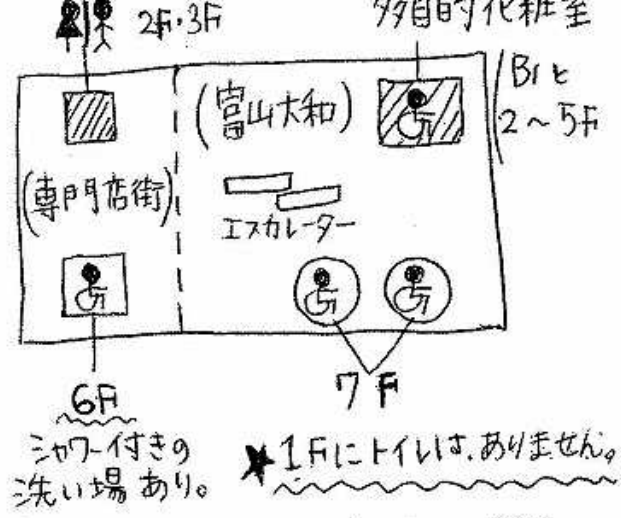 2F・3F
多目的化粧室
B1と
2〜5F
(富山大和)
(専門店街)
エスカレーター
7F
6F
シャワー付きの
洗い場あり。
★1Fにトイレは、ありません。